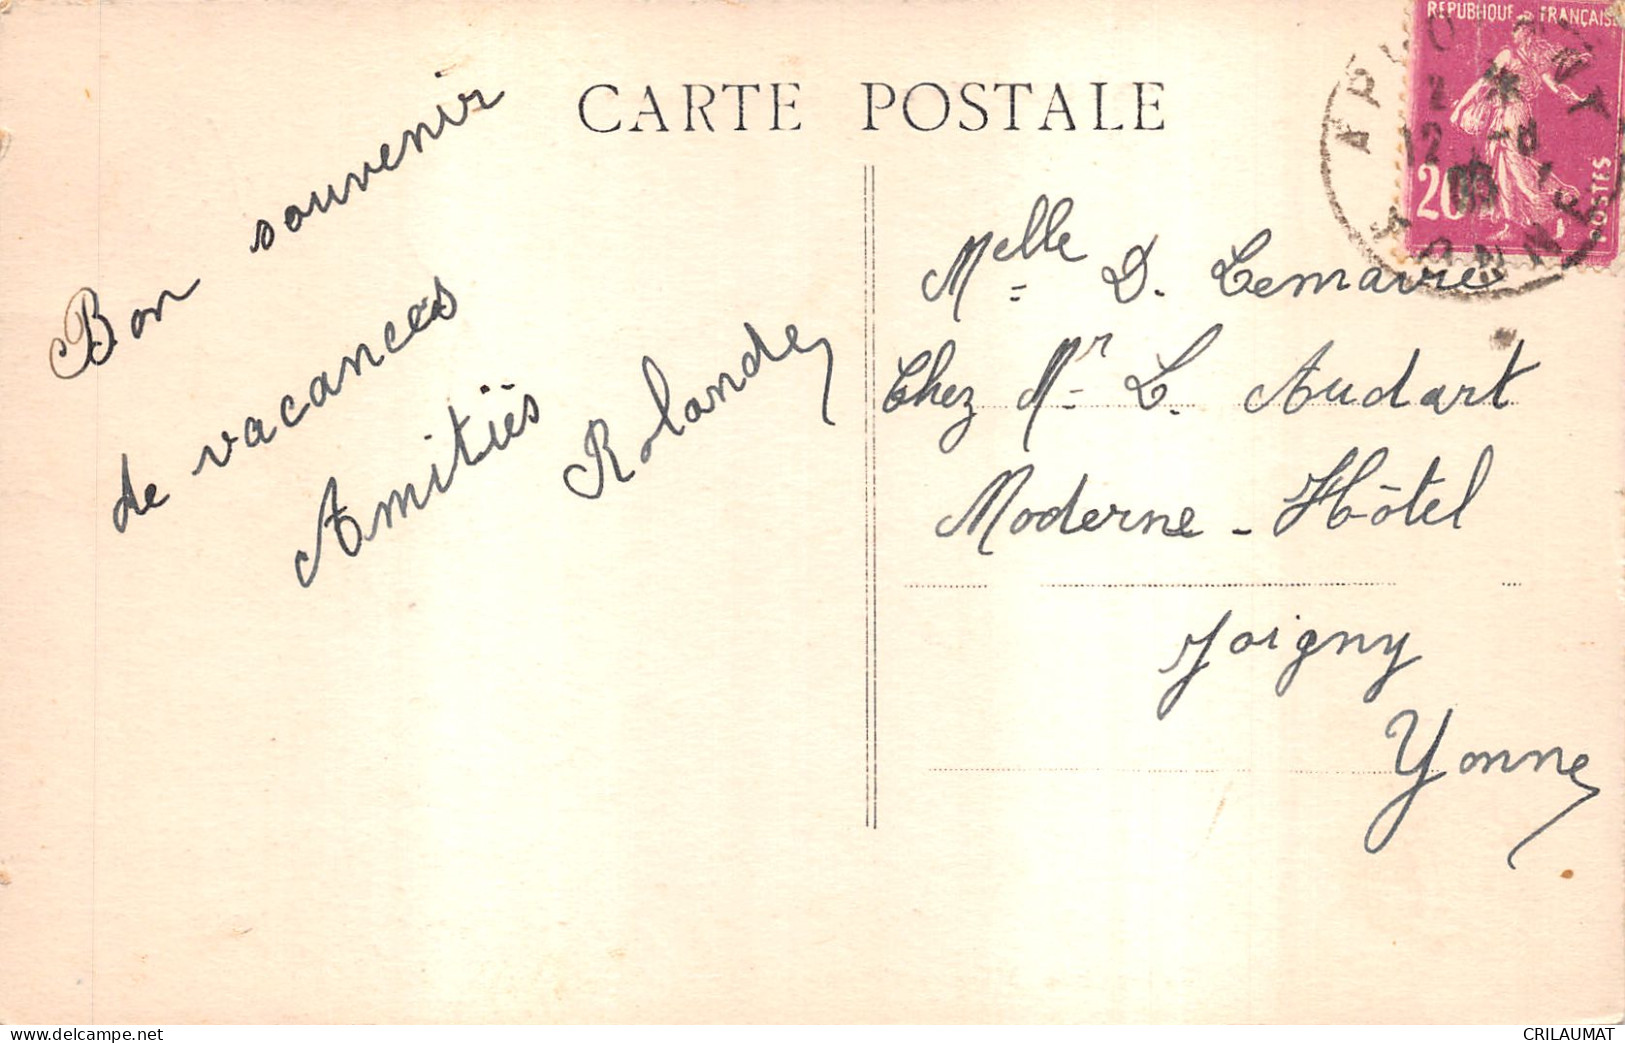 CARTE POSTALE
Bon souvenir
de vacances
Amitiés
Rolande
Melle D. Lemaire
Chez Mr L. Audart
Moderne - Hôtel
Joigny
Yonne
REPUBLIQUE FRANÇAISE
20
POSTES
YONNE
CRILAUMAT